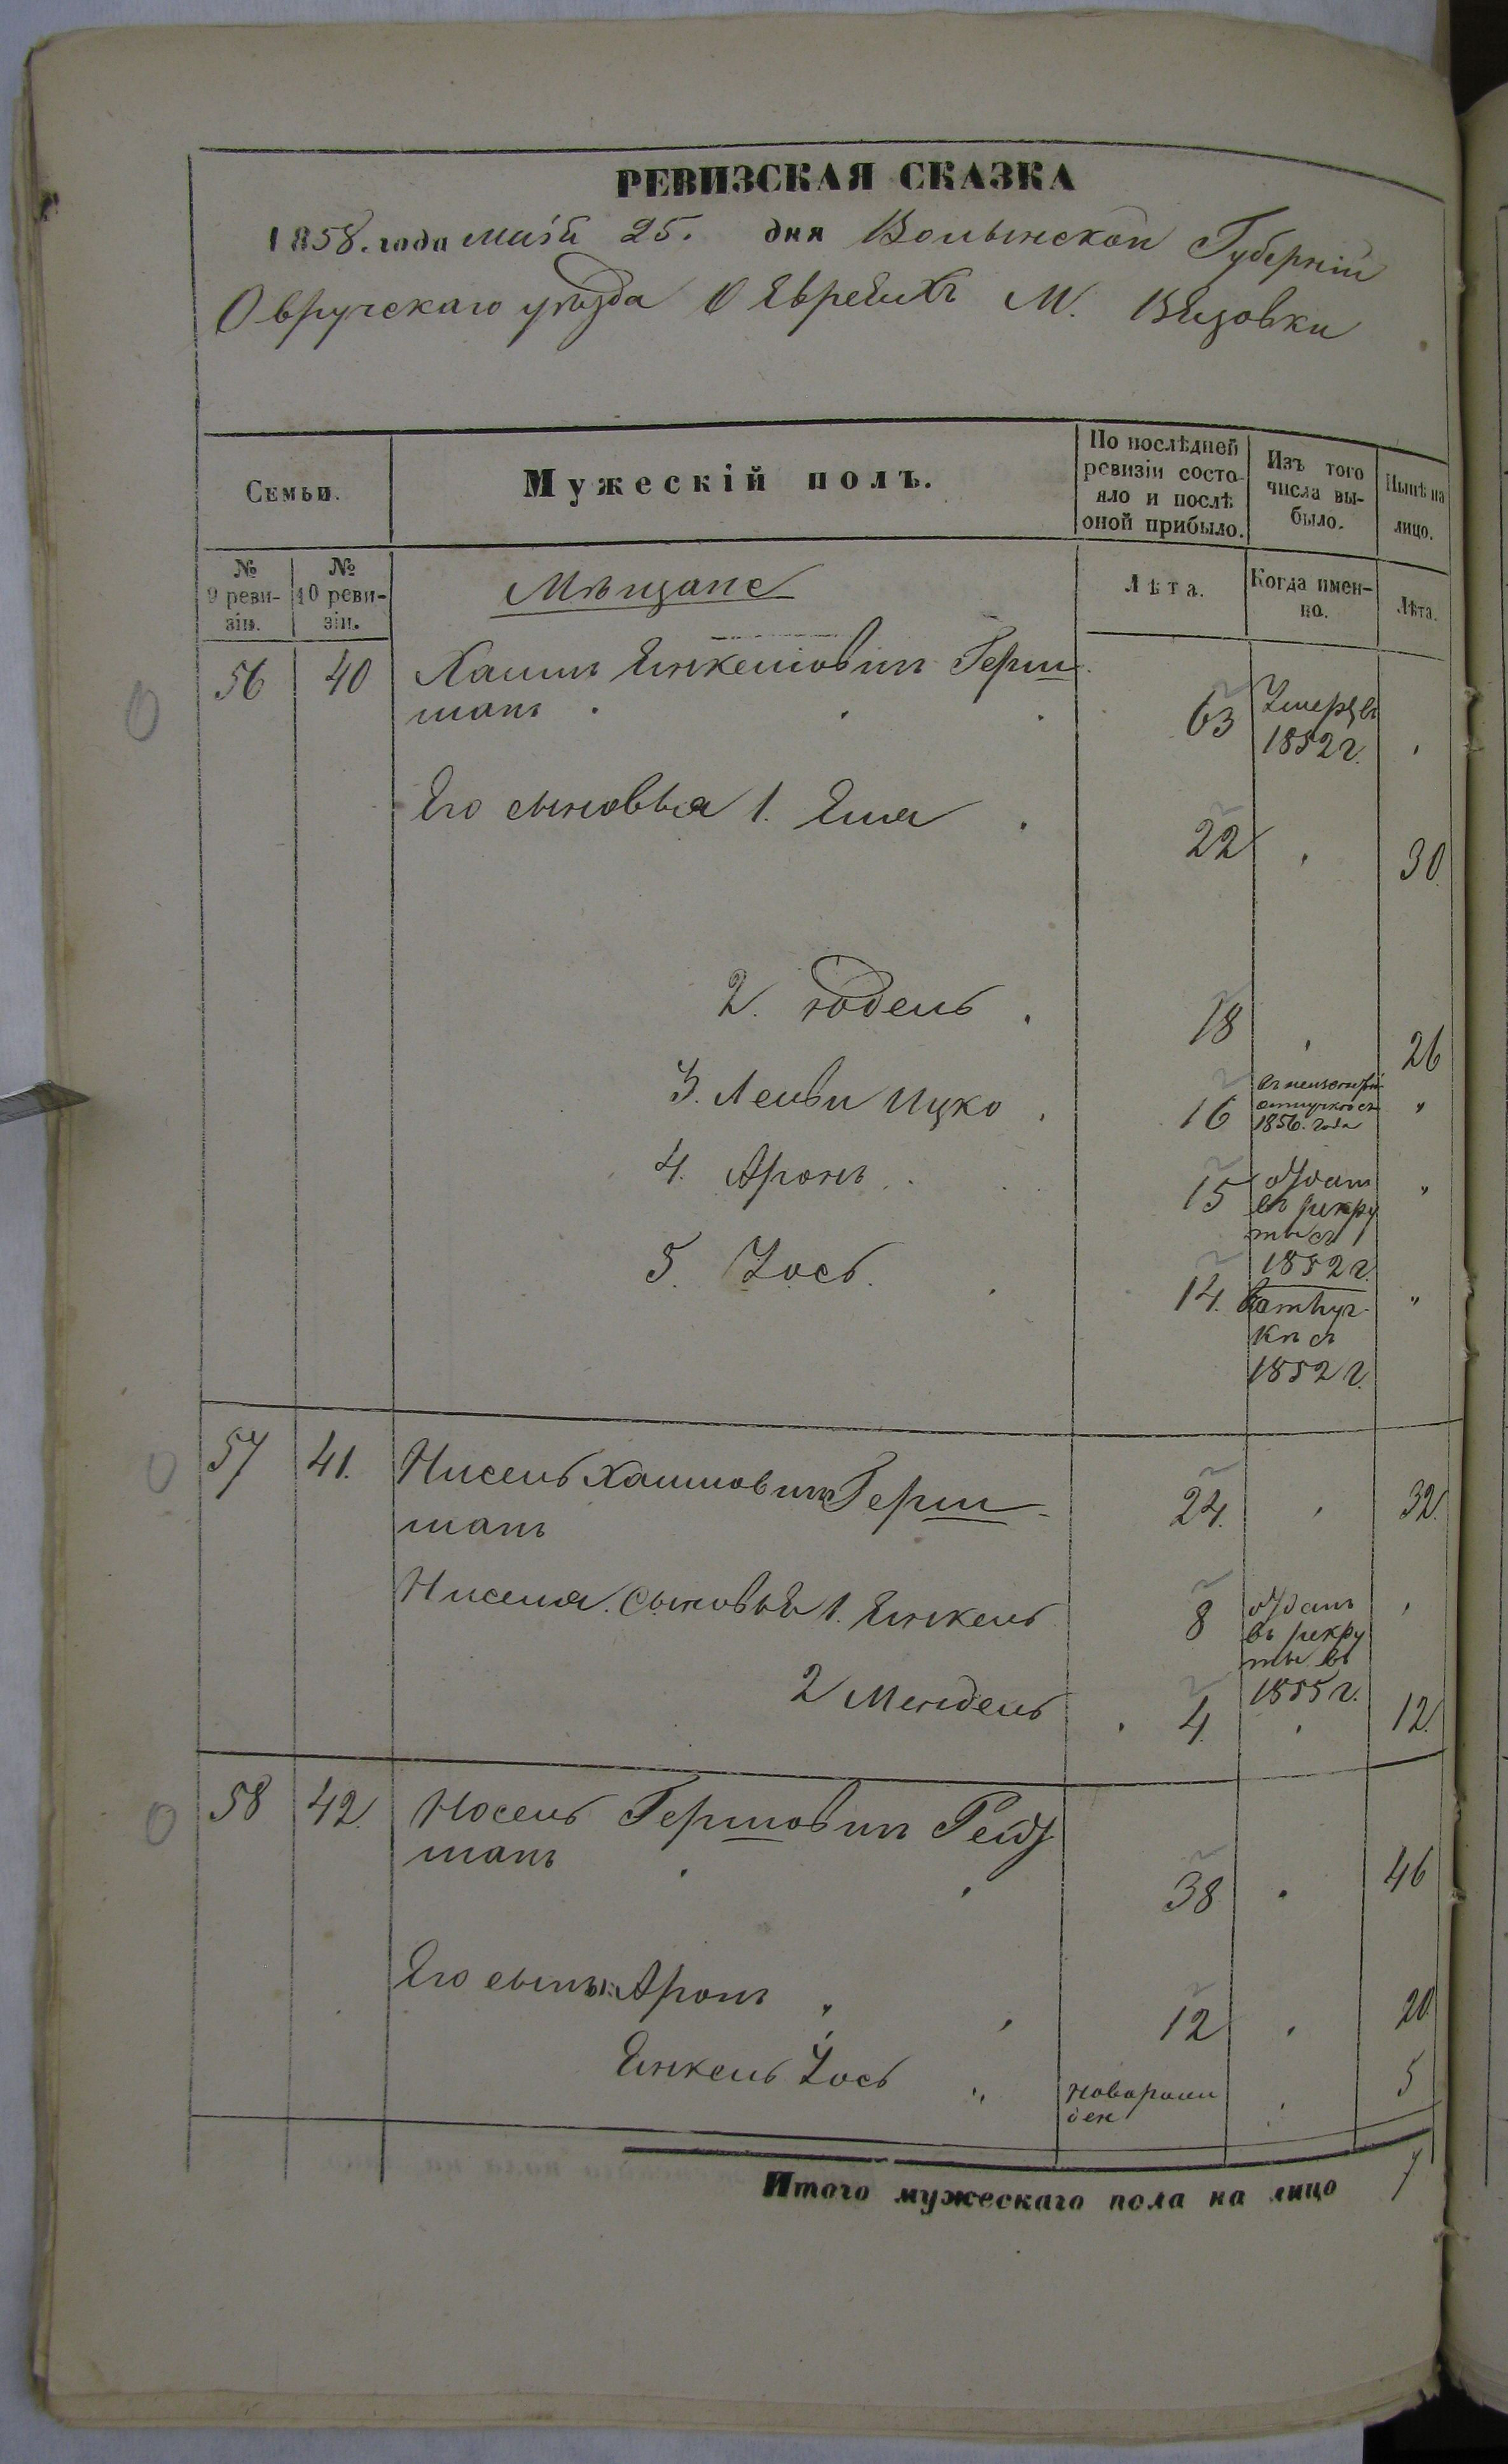 РЕВИЗСКАЯ СКАЗКА
1858. года Маія 25. дня Волынской Губерніи
Овручскаго уѣзда О Евреяхъ М. Вязовки
Семьи.
Мужескій полъ.
По послѣдней ревизіи состояло и послѣ оной прибыло.
Изъ того числа выбыло.
Нынѣ на лицо.
№ 9 ревизіи.
№ 10 ревизіи.
Лѣта.
Когда именно.
Лѣта.
Мѣщане
56 40 Хаимъ Янкелювичъ Герш
манъ 63 Умеръ въ
1852 г.
Его сыновья 1. Еля 22 30
2. Юдель 18 26
3. Лейви Ицко 16
1856. года
4. Аронъ 15 отданъ
въ рекру
ты съ
1852 г.
5. Іось 14.
1852 г.
57 41. Нисель Хаимовичъ Герш-
манъ 24. 32.
Ниселя Сыновья 1. Янкель 8 отданъ
въ рекру
ты въ
1855 г.
2 Мендель 4. 12.
58 42. Носель Гершовичъ
манъ 38 46
Его сынъ 1. Аронъ 12 20
Янкель Іось новорож
ден 5
Итого мужескаго пола на лицо 7